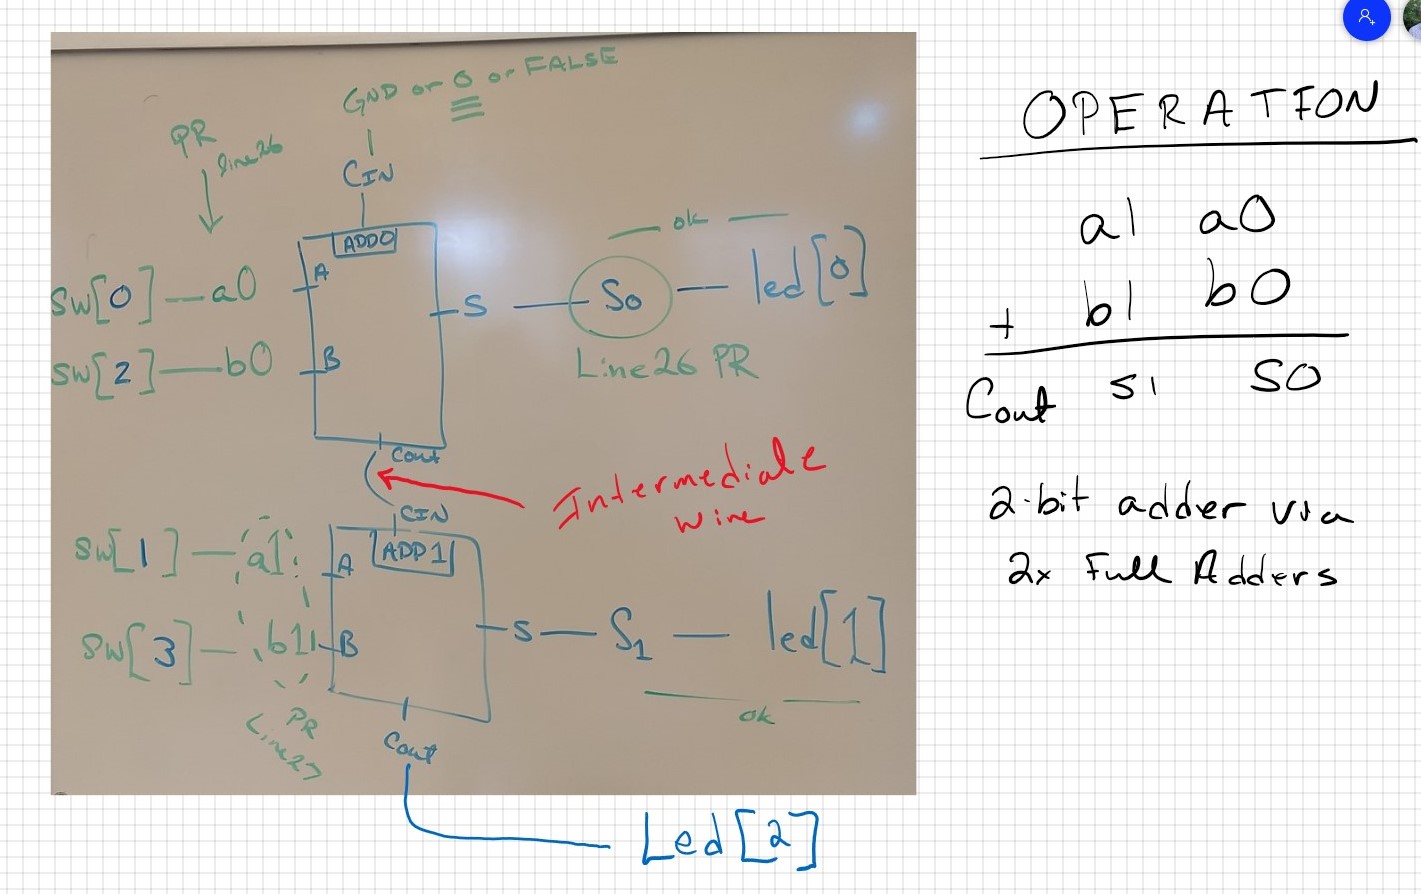 GND or 0 or FALSE
PR
line26
CIN
ADD0
ok
SW[0] a0 A
S S0 led[0]
SW[2] b0 B
Line26 PR
Cout
Intermediate
wire
CIN
ADD1
SW[1] a1 A
S S1 led[1]
SW[3] b1 B
ok
PR
Line27
Cout
Led[2]
OPERATION
a1 a0
+ b1 b0
Cout S1 S0
2-bit adder via
2x Full Adders